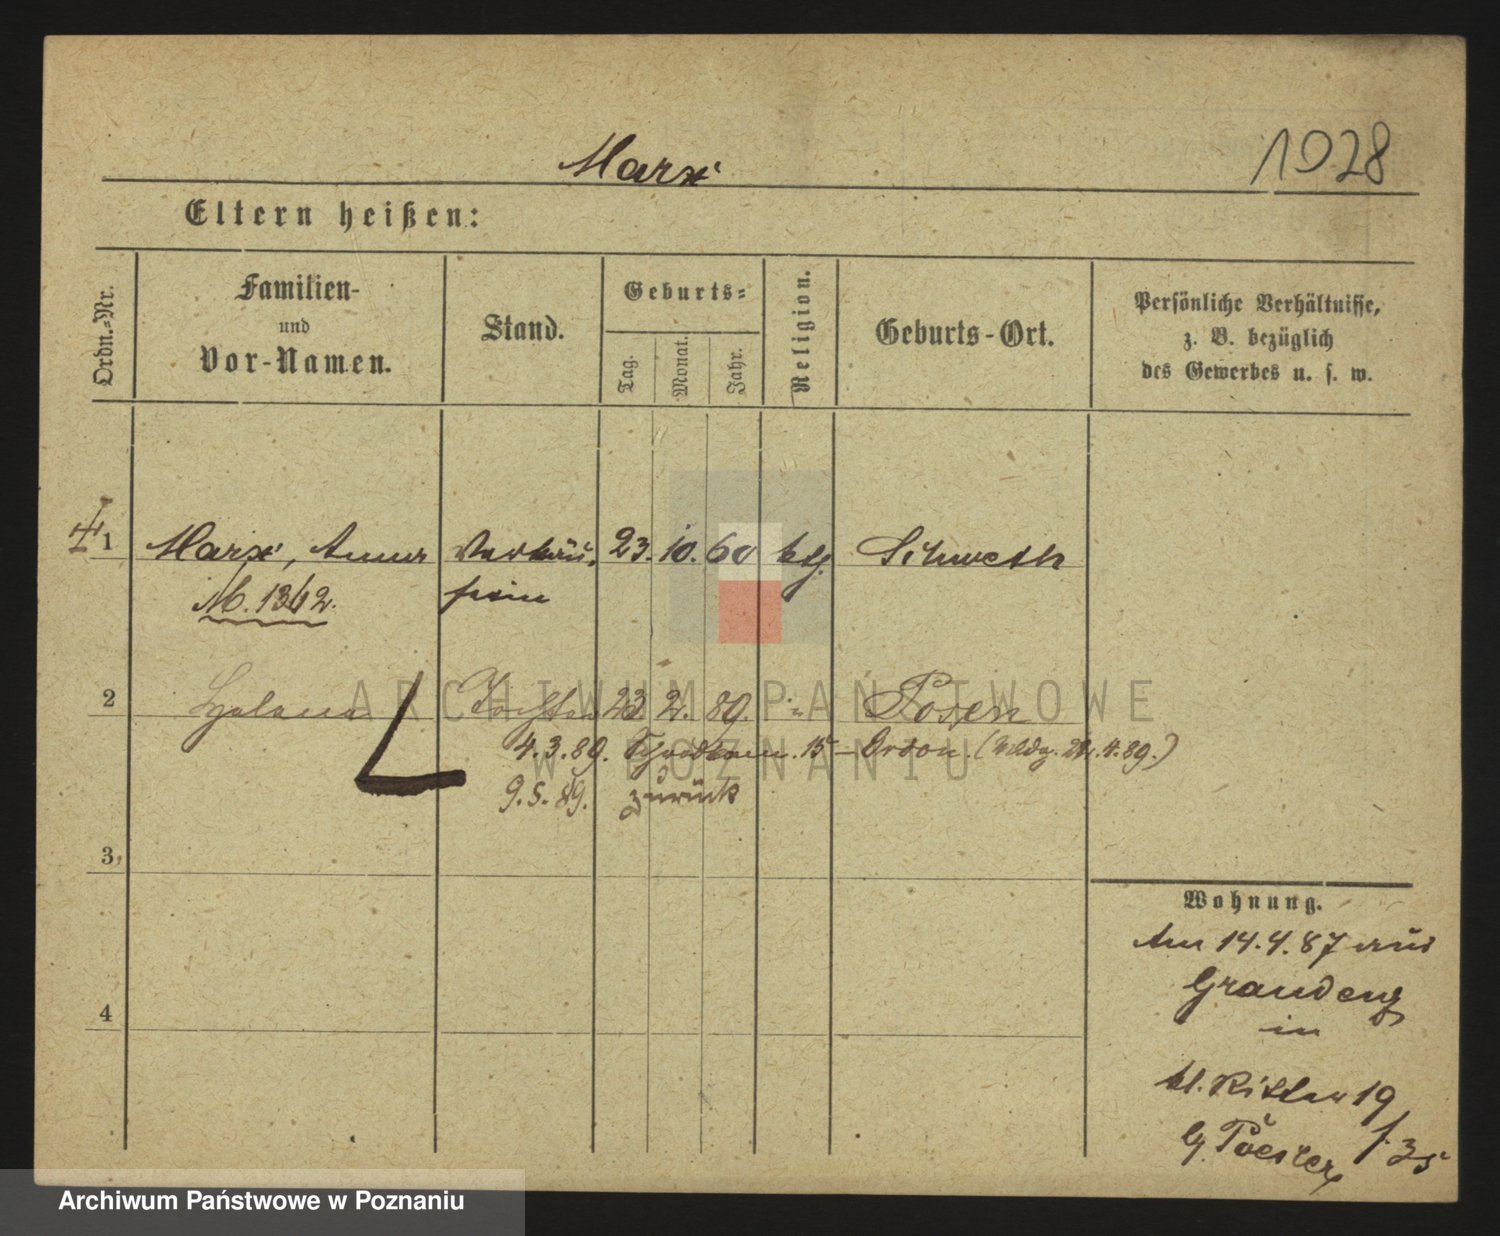 Marx
1028
Eltern heißen:
Ordn.-Nr.
Familien-
und
Vor-Namen.
Stand.
Geburts-
Tag.
Monat.
Jahr.
Religion.
Geburts-Ort.
Persönliche Verhältnisse,
z. B. bezüglich
des Gewerbes u. s. w.
1 Marx, Anna Verkäu- 23. 10. 60 ktl. Schwetz
M. 1342. ferin
2 Helena Tochter 23 2. 89. " Posen
ARCHIWUM PAŃSTWOWE
W POZNANIU
4.3.89. 15 – Ordon. (Mldg. 24.4.89.)
9.5.89. zurück
3
4
Wohnung.
Am 14.4.87 aus
Graudenz
in
kl. Ritter 19
b/
Archiwum Państwowe w Poznaniu